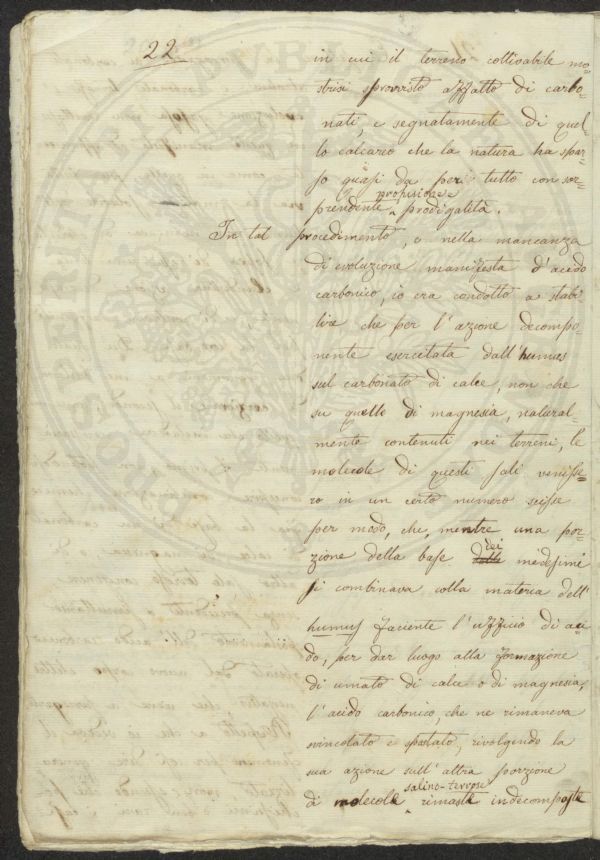 22
in cui il terreno coltivabile mo-
strisi sprovvisto affatto di carbo-
nati, e segnatamente di quel-
lo calcario che la natura ha spar-
so quasi da per tutto con sor-
prendente profusione e prodigalità.
In tal procedimento, e nella mancanza
di evoluzione manifesta d'acido
carbonico, io era condotto a stabi
lire che per l'azione decompo-
nente esercitata dall'humus
sul carbonato di calce, non che
su quello di magnesia, natural-
mente contenuti nei terreni, le
molecole di questi sali venisse-
ro in un certo numero scisse
per modo, che, mentre una por-
zione della base dei medesimi
si combinava colla materia dell'
humus faciente l'uffficio di aci
do, per dar luogo alla formazione
di umato di calce o di magnesia,
l'acido carbonico, che ne rimaneva
svincolato e spostato, rivolgendo la
sua azione sull'altra porzione
di molecole salino-terrose rimaste indecomposte